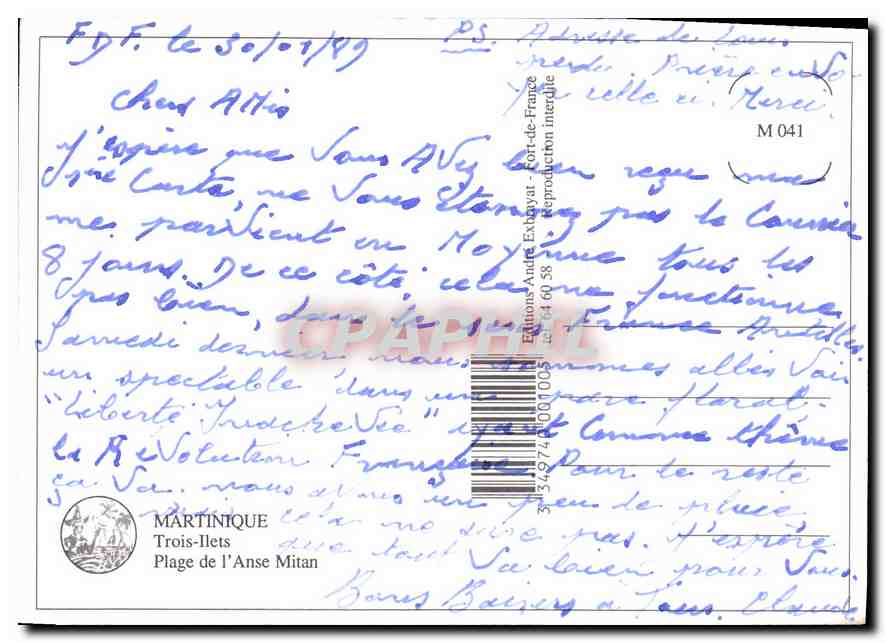 F.D.F. le 30/01/89
PS. Adresse de Louis
perdu. Prière envo-
yer celle ci. Merci.
Chers AMis
J'espère que Vous AVez bien reçu ma
1ère Carte, ne Vous Etonnez pas le Courrier
me parvient en Moyenne tous les
8 jours. De ce côté, cela ne fonctionne
pas bien, dans le sens France Antilles.
Samedi dernier nous sommes allés Voir
un spectable dans un parc floral-
"Liberté InacheVée" ayant Comme thème
la RéVolution Française Pour le reste
ça Va. nous aVons un peu de pluie
mais cela ne dure pas. J'espère
que tout Va bien pour Vous.
Bons Baisers a Tous. Claude
M 041
Editions André Exbrayat - Fort-de-France
tel 64 60 58 Reproduction interdite
3 349740 001005
CPAPHIL
MARTINIQUE
Trois-Ilets
Plage de l'Anse Mitan